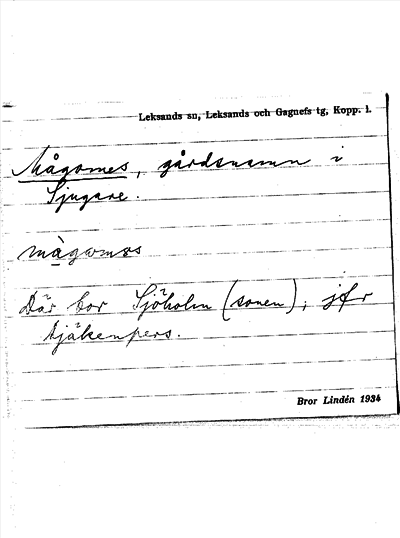 Leksands sn, Leksands och Gagnefs tg, Kopp. l.
Mågomes, gårdsnamn i
Sjugare.
Där bor Sjöholm (sonen), jfr
Bror Lindén 1934